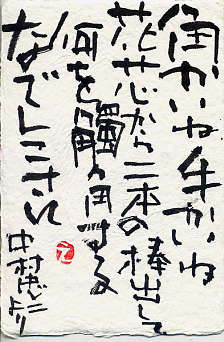 角かいね手かいね
花芯から二本の棒出して
何を觸角する
なでしこさん
中村忠二より